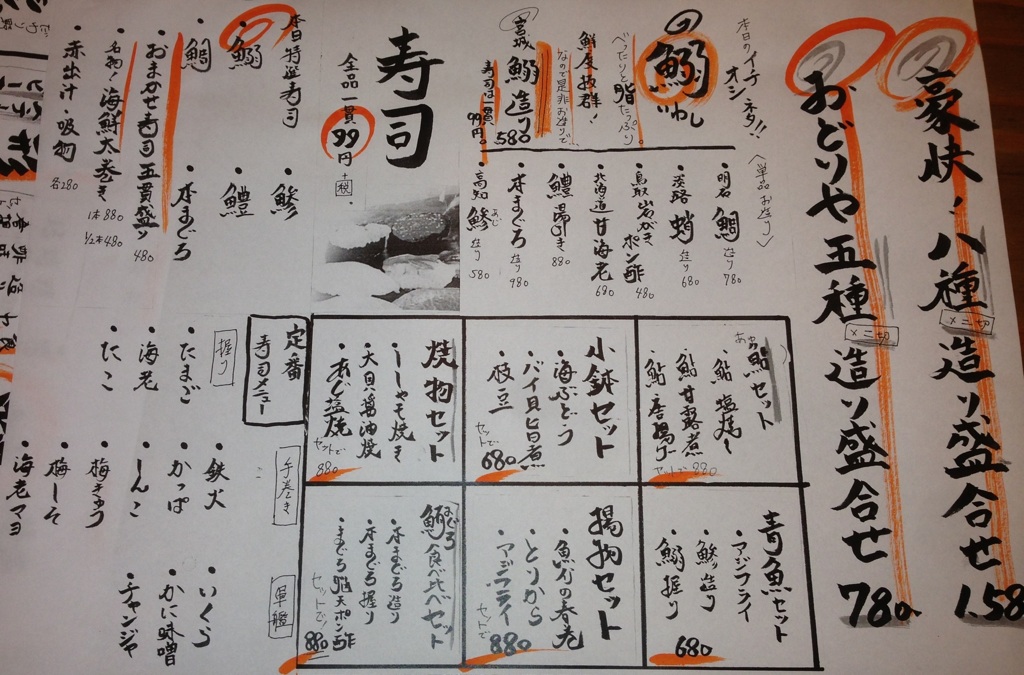 豪快!八種造り盛合せ 1.58
メニ切
おどりや五種造り盛合せ 780
メニ切
本日のイチオシネタ!!
鰯 いわし
べったりと脂たっぷり。
鮮度抜群!
なので是非お造りで
宮城 鰯造り 580
寿司は一貫99円。
〈単品お造り〉
明石 鯛 造り 780
淡路 蛸 造り 680
鳥取 岩がき ポン酢 480
北海道 甘海老 680
鱧湯引き 880
本まぐろ 造り 980
高知 鯵 あじ 造り 580
寿司
全品一貫99円+税
本日特選寿司
・鰯
・鯵
・鯛
・鱧
・本まぐろ
・おまかせ寿司五貫盛り 480
・名物!海鮮太巻き 1本880 1/2本480
・赤出汁 吸物 各280
鮎セット
あゆ
鮎塩焼
鮎甘露煮
鮎唐揚げ
セットで880
小鉢セット
・海ぶどう
・バイ貝旨煮
・枝豆
セットで680
焼物セット
・ししゃも焼き
・大貝醤油焼
・あじ塩焼
セットで880
青魚セット
・アジフライ
・鯵造り
・鰯握り
680
揚物セット
・魚介の春巻
・とりから
・アジフライ
セットで880
まぐろ食べ比べセット
・本まぐろ造り
・本まぐろ握り
・まぐろ脳天ポン酢
セットで!880
定番寿司メニュー
握り
・たまご
・海老
・たこ
手巻き
・鉄火
・かっぱ
・しんこ
・梅きゅう
・梅しそ
・海老マヨ
軍艦
・いくら
・かに味噌
・チャンジャ